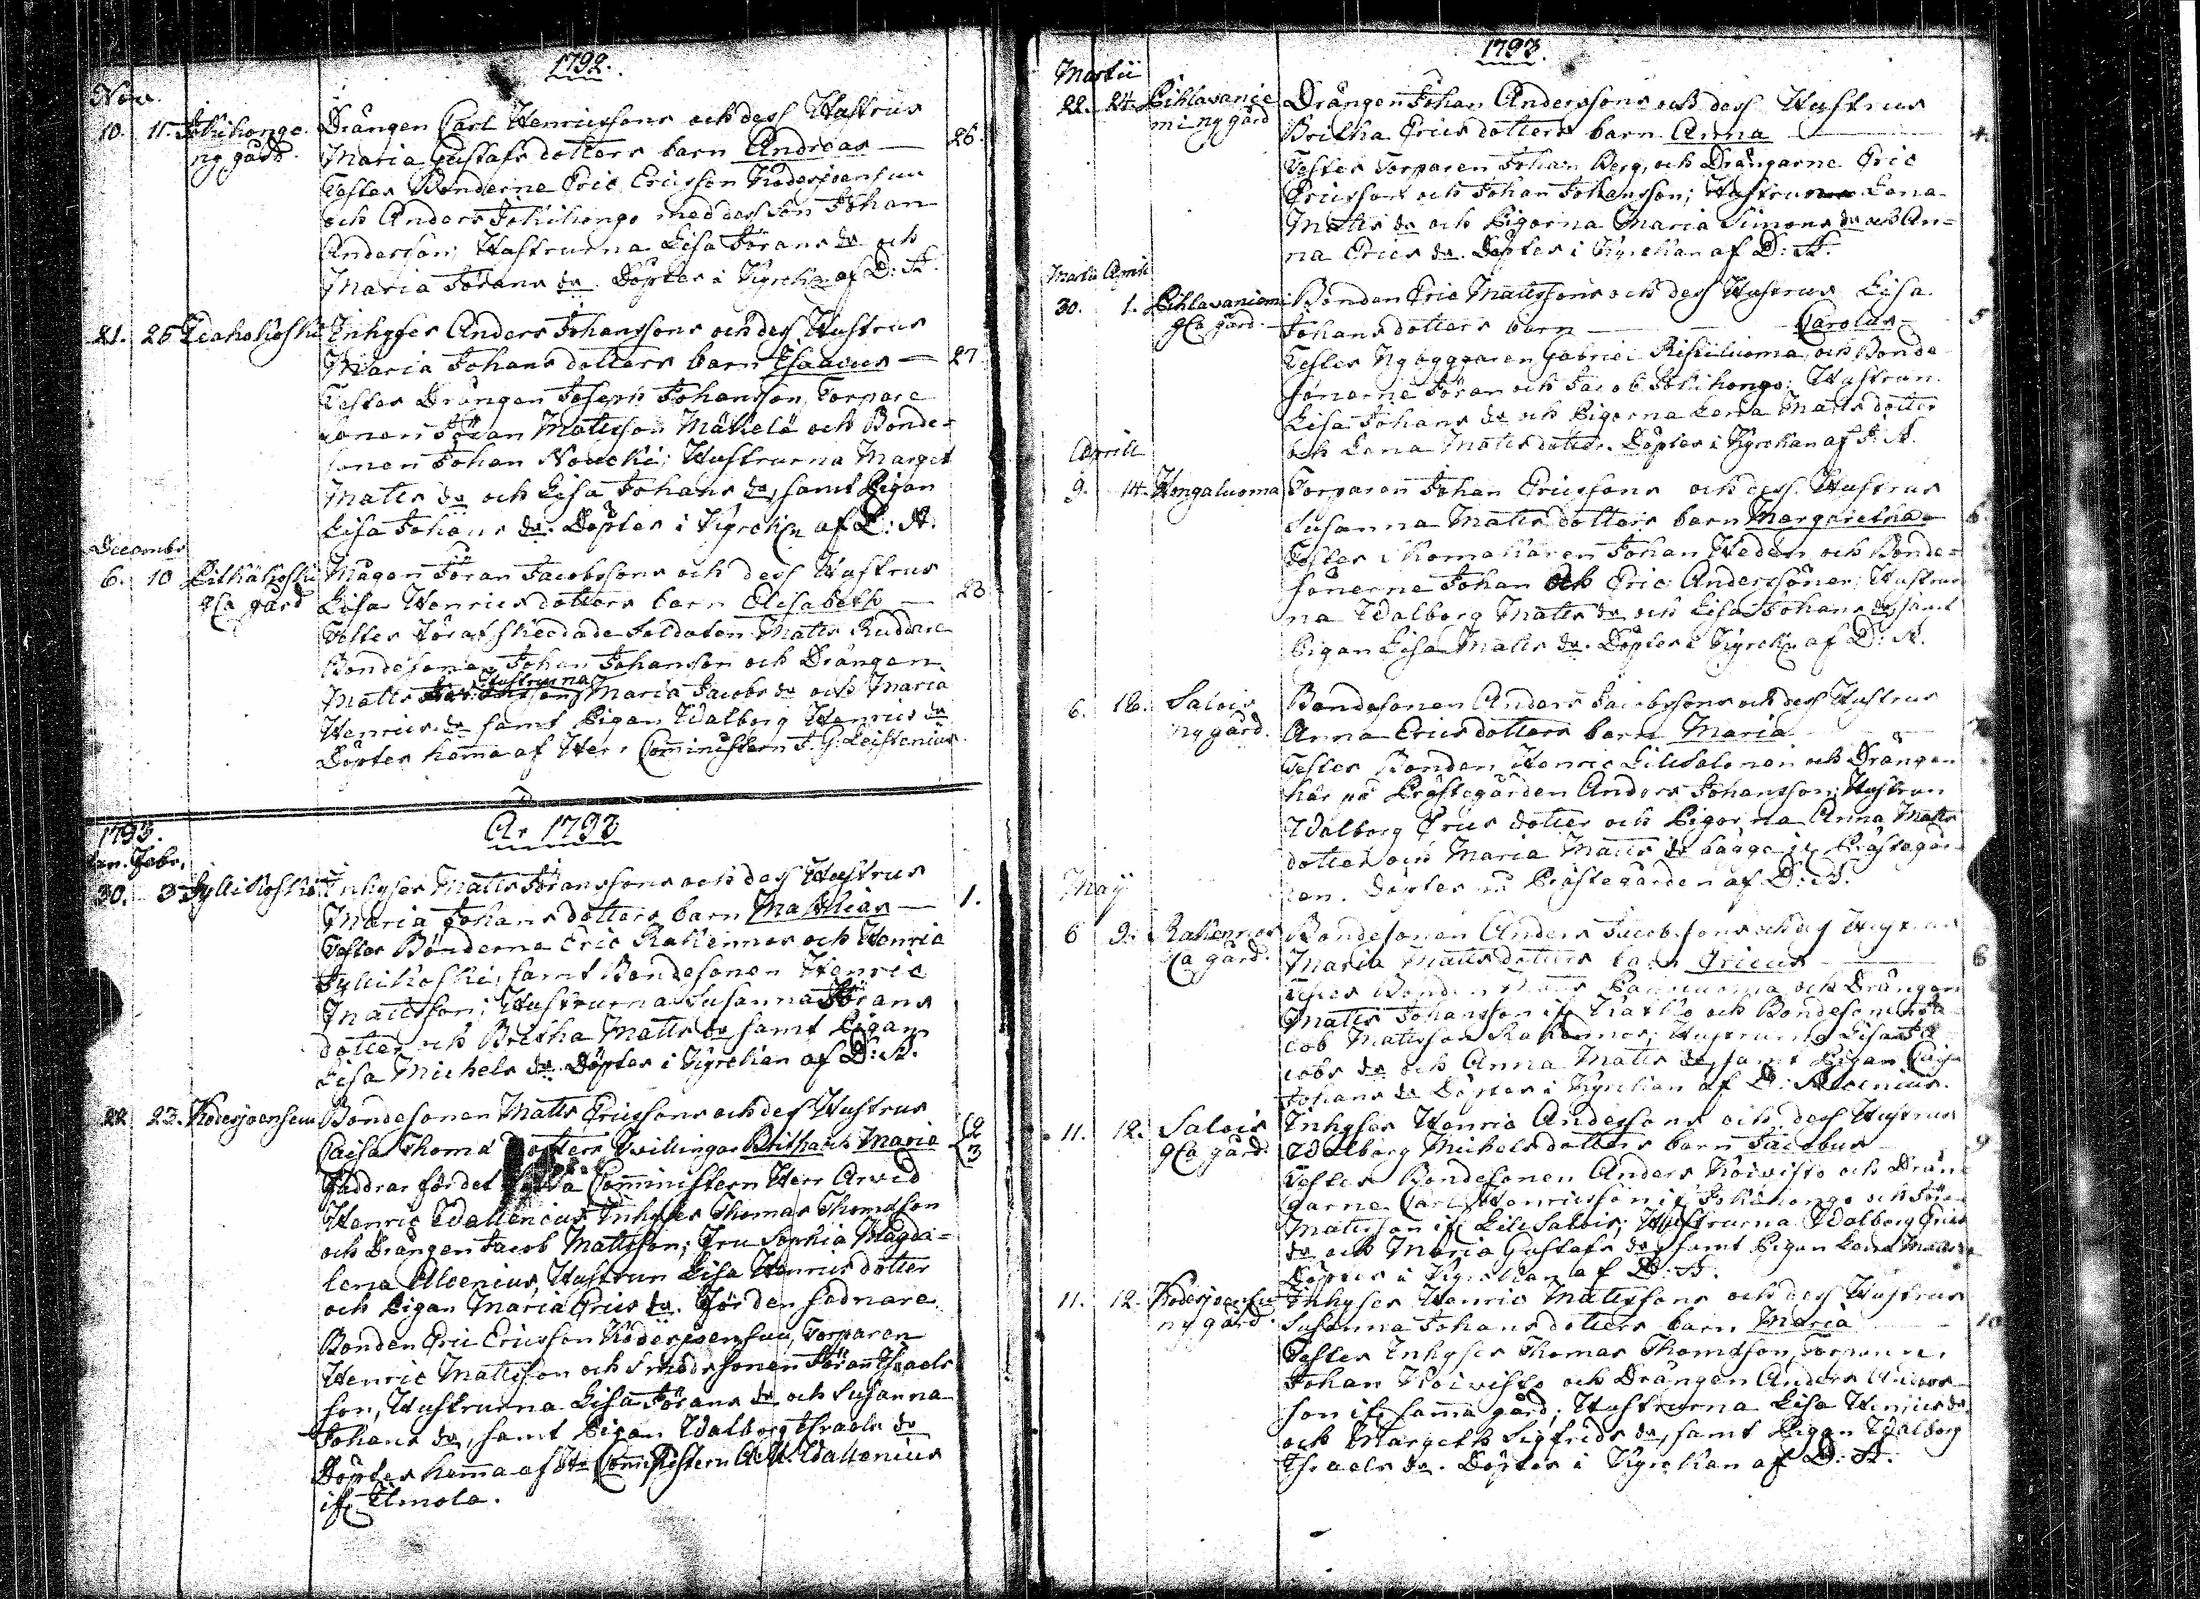 1792.
Nov.
10. 11. Jokihongo Drängen Carl Henricssons och dess Hustrus
ny gård. Maria Gustafs dotters barn Andreas — 26.
Testes Bönderne Eric Ericsson Kodesjoensuu
och Anders Jokihongo med dess son Johan
Andersson; Hustrurna Lisa Jörans dr och
Maria Jörans dr. Döptes i Kyrckn af D: A.
21. 25 Inhyses Anders Johanssons och dess Hustrus
Maria Johans dotters barn Isaacus — 27.
Testes Drängen Joseph Johansson, Torpare
sonen Jöran Matsson Mäkelä och Bonde=
sonen Johan Noucki; Hustrurna Marget
Matts dr och Lisa Johans dr, samt Pigan
Lisa Johans dr. Döptes i Kyrckn af D: A.
Decembr
6. 10 Pitkäkoski Mågen Jöran Jacobssons och dess Hustrus
gla gård Lisa Henrics dotters barn Elisabeth — 28
Testes för afskedade Soldaten Matts Ruddare
Bondesonen Johan Johansson och Drängen
Matts Hustrurna Maria Jacobs dr och Maria
Henrics dr samt Pigan Walborg Henrics dr
Döptes hema af Herr Cominstern J. G. Leistenius
1793.
År 1793
Jan. Febr.
30. 3 Jyllikoski Inhyses Matts Jöranssons och dess Hustrus
Maria Johans dotters barn Mathias — 1.
Testes Bönderne Eric Rahkennos och Henric
Jyllikoski, samt Bondesonen Henric
Mattsson; Hustrurna Susanna Jörans
dotter och Britha Matts dr samt Pigan
Lisa Michels dr. Döptes i Kyrckan af D: A.
22 23. Kodesjoensuu Bondesonen Matts Ericssons och dess Hustrus
Caisa Thomæ dotters Tvillingar Britha och Maria 2 3
Faddrar för det Cominstern Herr Arvid
Henric Wallenius, Inhyses Thomas Thomasson
och Drängen Jacob Mattsson; Fru Sophia Magda=
lena Alcenius, Hustrun Lisa Henrics dotter
och Pigan Maria Erics dr. För den sednare
Bonden Eric Ericsson Kodesjoensuu, Torparen
Henric Mattsson och Smedssonen Jöran Israels
son, Hustrurna Lisa Jörans dr och Susanna
Johans dr, samt Pigan Walborg Israels dr
Döptes hema af Hr Cominstern A. H. Wallenius
ifr. Ilmola.
1793.
Martii
22. 24. Pihlavanie Drängen Johan Anderssons och dess Hustrus
mi ny gård Britha Erics dotters barn Anna — 4.
Testes Torparen Johan Berg, och Drängarne Eric
Ericsson och Johan Johansson; Hustrurna Lena
Matts dr och Pigorna Maria Simons dr och An=
na Erics dr. Döptes i Kyrckan af D: A.
Martii April
30. 1. Pihlavaniemi Bonden Eric Mattssons och dess Hustrus Lisa
gla gård. Johans dotters barn — Carolus — 5
Testes Nybyggaren Gabriel och Bonde
sönerne Jöran och Jacob Jokihongo; Hustrun
Lisa Johans dr och Pigorna Lena Matts dotter
och Lena Matts dotter. Döptes i Kyrckan af D: A.
Aprill
9. 14. Hongaluoma Torparen Johan Ericssons och dess Hustrus
Susanna Matts dotters barn Margaretha 6
Testes Skomakaren Johan Hedén, och Bonde=
sönerne Johan och Eric Anderssöner; Hustrur
na Walborg Matts dr och Lisa Johans dr samt
Pigan Lisa Matts dr. Döptes i Kyrckn af D: A.
6. 18. Salois Bondesonen Anders Jacobssons och dess Hustrus
ny gård. Anna Erics dotters barn Maria 7
Testes Bonden Henric Lillsalonen och Drängen
här på Prästegården Anders Johansson; Hustrun
Walborg Erics dotter och Pigorna Anna Matts
dotter och Maria Matts dr bägge ifr Prästegår
den. Döptes på Prästegården af D: A.
Maij
6 9. Rahkennos Bondesonen Anders Jacobssons och dess Hustrus
gla gård. Maria Matts dotters barn Ericus 8
Testes Bonden och Drängen
Matts Johansson och Bondesonen Ja
cob Mattsson Rahkennos; Hustrurna Lisa Ja
cobs dr och Anna Matts dr, samt Pigan Caisa
Johans dr Döptes i Kyrckan af D: Alcenius.
11. 12. Salois Inhyses Henric Anderssons och dess Hustrus
gla gård. Walborg Michels dotters barn Jacobus 9
Testes Bondesonen Anders Koivisto och Drän
garne Carl Henricsson ifr Jokihongo och Jöran
Mattsson ifr Lill Salois; Hustrurna Walborg Erics
dr och Maria Gustafs dr, samt Pigan Lena Matts
Döptes i Kyrckan af D: A.
11. 12. Kodesjoensuu Inhyses Henric Mattssons och dess Hustrus
ny gård. Susanna Johans dotters barn Maria 10
Testes Inhyses Thomas Thomasson, Torparen
Johan Koivisto och Drängen Anders Anders
son ifr sama gård; Hustrurna Lisa Henrics dr.
och Margeth Sigfrids dr, samt Pigan Walborg
Israels dr. Döptes i Kyrckan af D: A.